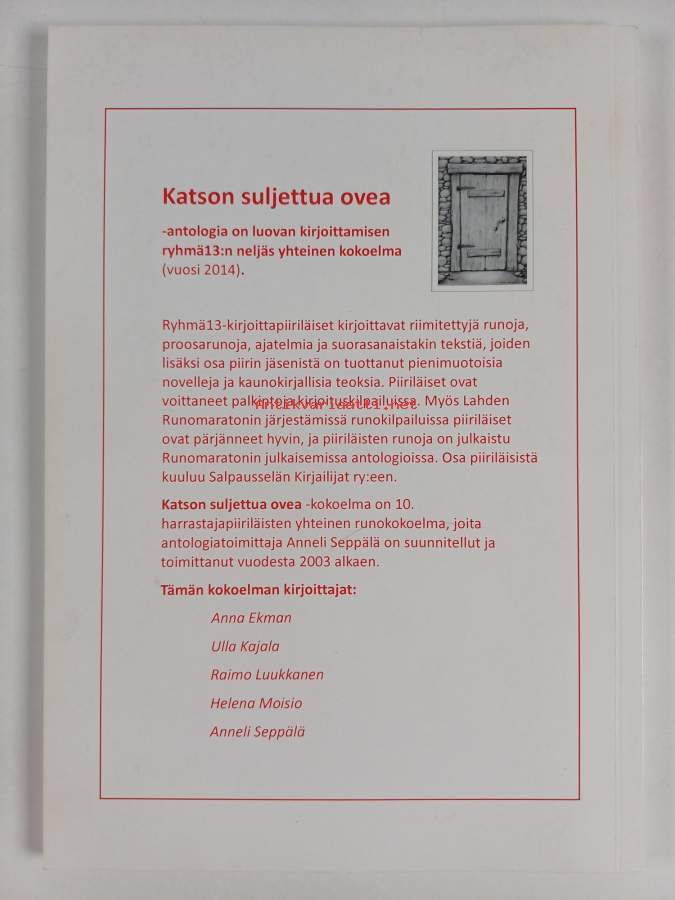 Katson suljettua ovea
-antologia on luovan kirjoittamisen
ryhmä13:n neljäs yhteinen kokoelma
(vuosi 2014).
Ryhmä13-kirjoittapiiriläiset kirjoittavat riimitettyjä runoja,
proosarunoja, ajatelmia ja suorasanaistakin tekstiä, joiden
lisäksi osa piirin jäsenistä on tuottanut pienimuotoisia
novelleja ja kaunokirjallisia teoksia. Piiriläiset ovat
voittaneet palkintoja kirjoituskilpailuissa. Myös Lahden
Antikvariaatti.net
Runomaratonin järjestämissä runokilpailuissa piiriläiset
ovat pärjänneet hyvin, ja piiriläisten runoja on julkaistu
Runomaratonin julkaisemissa antologioissa. Osa piiriläisistä
kuuluu Salpausselän Kirjailijat ry:een.
Katson suljettua ovea -kokoelma on 10.
harrastajapiiriläisten yhteinen runokokoelma, joita
antologiatoimittaja Anneli Seppälä on suunnitellut ja
toimittanut vuodesta 2003 alkaen.
Tämän kokoelman kirjoittajat:
Anna Ekman
Ulla Kajala
Raimo Luukkanen
Helena Moisio
Anneli Seppälä